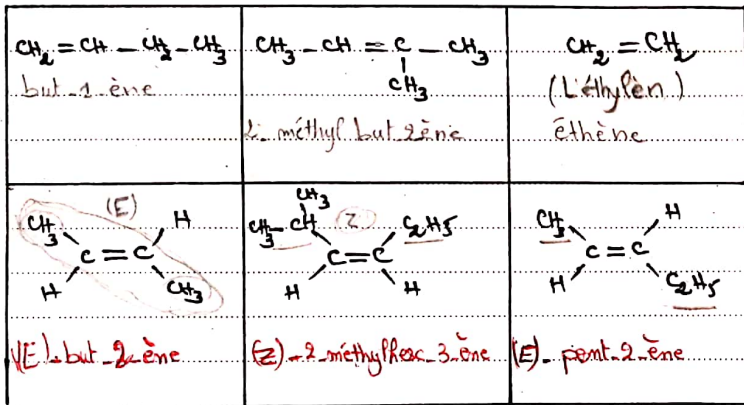 CH₂ = CH – CH₂ – CH₃
but-1-ène
CH₃ – CH = C – CH₃
CH₃
2-méthyl but-2ène
CH₂ = CH₂
(L'éthylèn)
éthène
(E)
CH₃ H
C = C
H CH₃
(E)-but-2-ène
CH₃
CH₃-CH (Z) C₂H₅
C = C
H H
(Z)-2-méthylhex-3-ène
CH₃ H
C = C
H C₂H₅
(E)-pent-2-ène